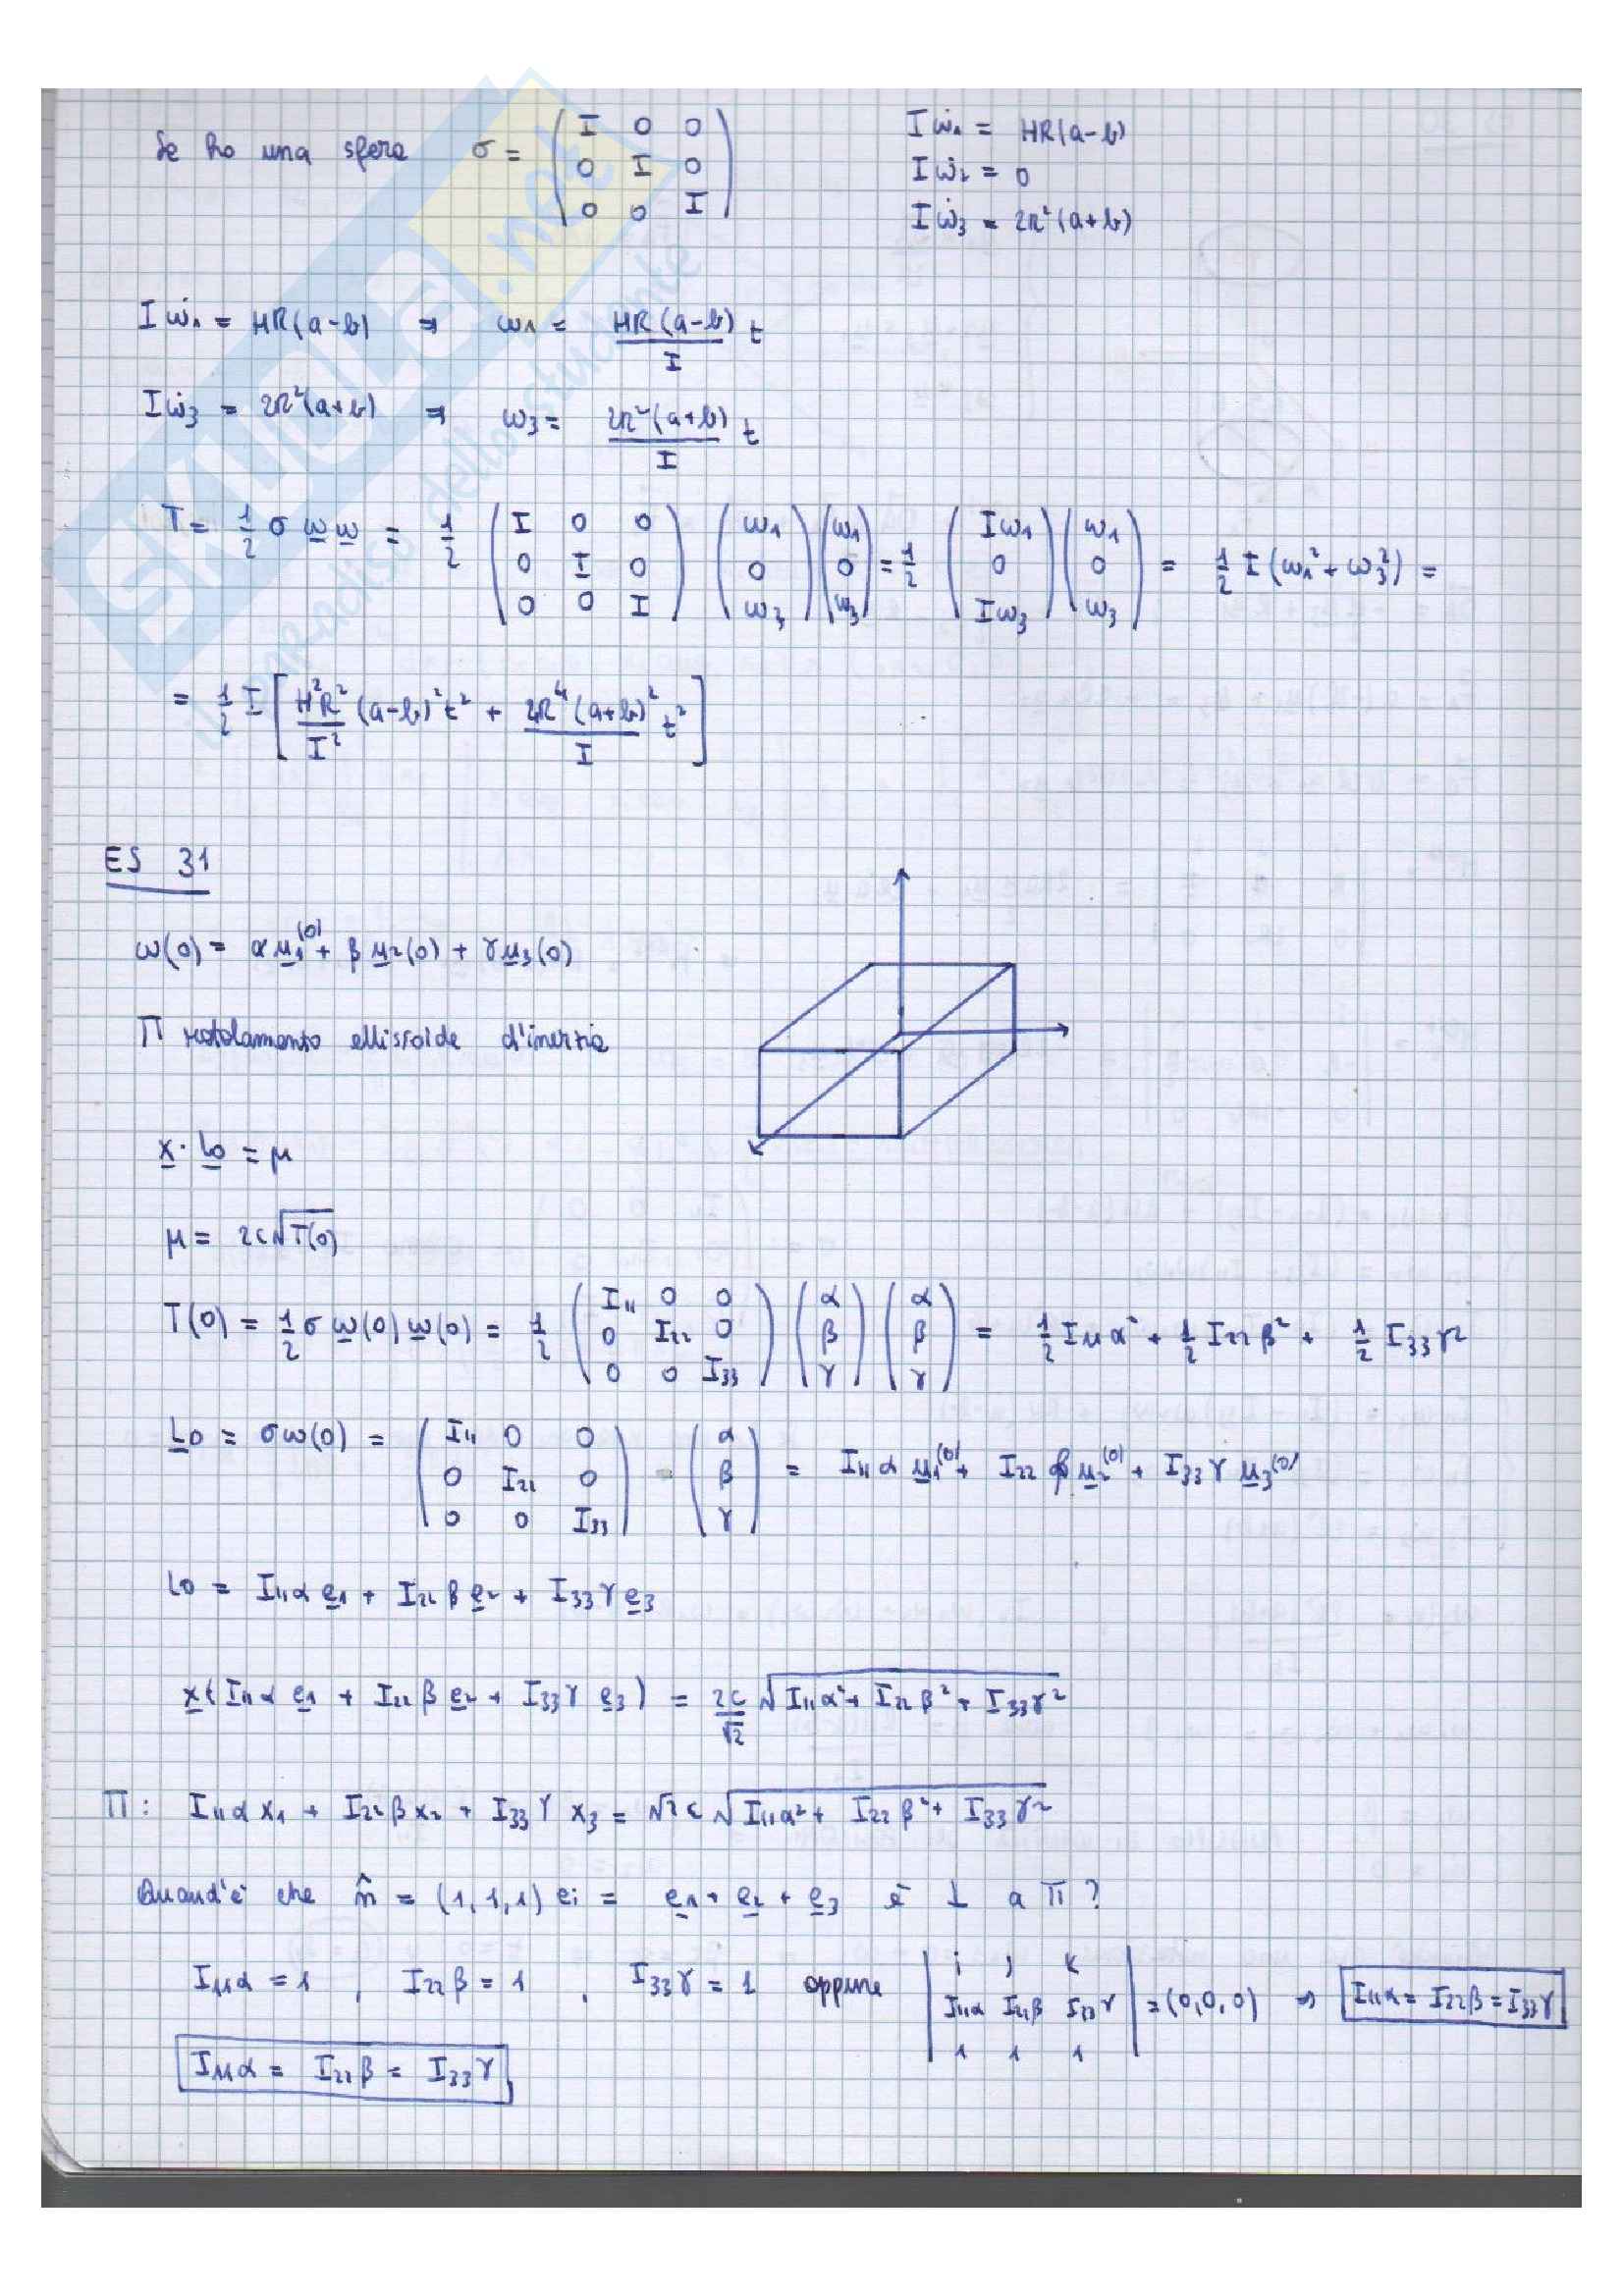 Se ho una sfera σ = ( I 0 0 / 0 I 0 / 0 0 I )
Iω̇1 = HR(a-b)
Iω̇2 = 0
Iω̇3 = 2R²(a+b)
Iω̇1 = HR(a-b) ⇒ ω1 = HR(a-b)/I t
Iω̇3 = 2R²(a+b) ⇒ ω3 = 2R²(a+b)/I t
T = 1/2 σ ω ω = 1/2 ( I 0 0 / 0 I 0 / 0 0 I ) ( ω1 / 0 / ω3 ) ( ω1 / 0 / ω3 ) = 1/2 ( Iω1 / 0 / Iω3 ) ( ω1 / 0 / ω3 ) = 1/2 I (ω1² + ω3²) =
= 1/2 I [ H²R²/I² (a-b)² t² + 2R⁴(a+b)²/I t² ]
ES 31
ω(0) = α u1(0) + β u2(0) + γ u3(0)
Π rotolamento ellissoide d'inerzia
x · Lo = μ
μ = 2c√T(0)
T(0) = 1/2 σ ω(0) ω(0) = 1/2 ( I11 0 0 / 0 I22 0 / 0 0 I33 ) ( α / β / γ ) ( α / β / γ ) = 1/2 I11 α² + 1/2 I22 β² + 1/2 I33 γ²
Lo = σω(0) = ( I11 0 0 / 0 I22 0 / 0 0 I33 ) ( α / β / γ ) = I11 α u1(0) + I22 β u2(0) + I33 γ u3(0)
Lo = I11 α e1 + I22 β e2 + I33 γ e3
x (I11 α e1 + I22 β e2 + I33 γ e3) = 2c/√2 √(I11 α² + I22 β² + I33 γ²)
Π: I11 α x1 + I22 β x2 + I33 γ x3 = √2 c √(I11 α² + I22 β² + I33 γ²)
Quand'è che n̂ = (1,1,1) ei = e1 + e2 + e3 è ⊥ a Π?
I11α = 1 , I22β = 1 , I33γ = 1 oppure | i j k / I11α I22β I33γ / 1 1 1 | = (0,0,0) ⇒ I11α = I22β = I33γ
I11α = I22β = I33γ
SKUOLA.net